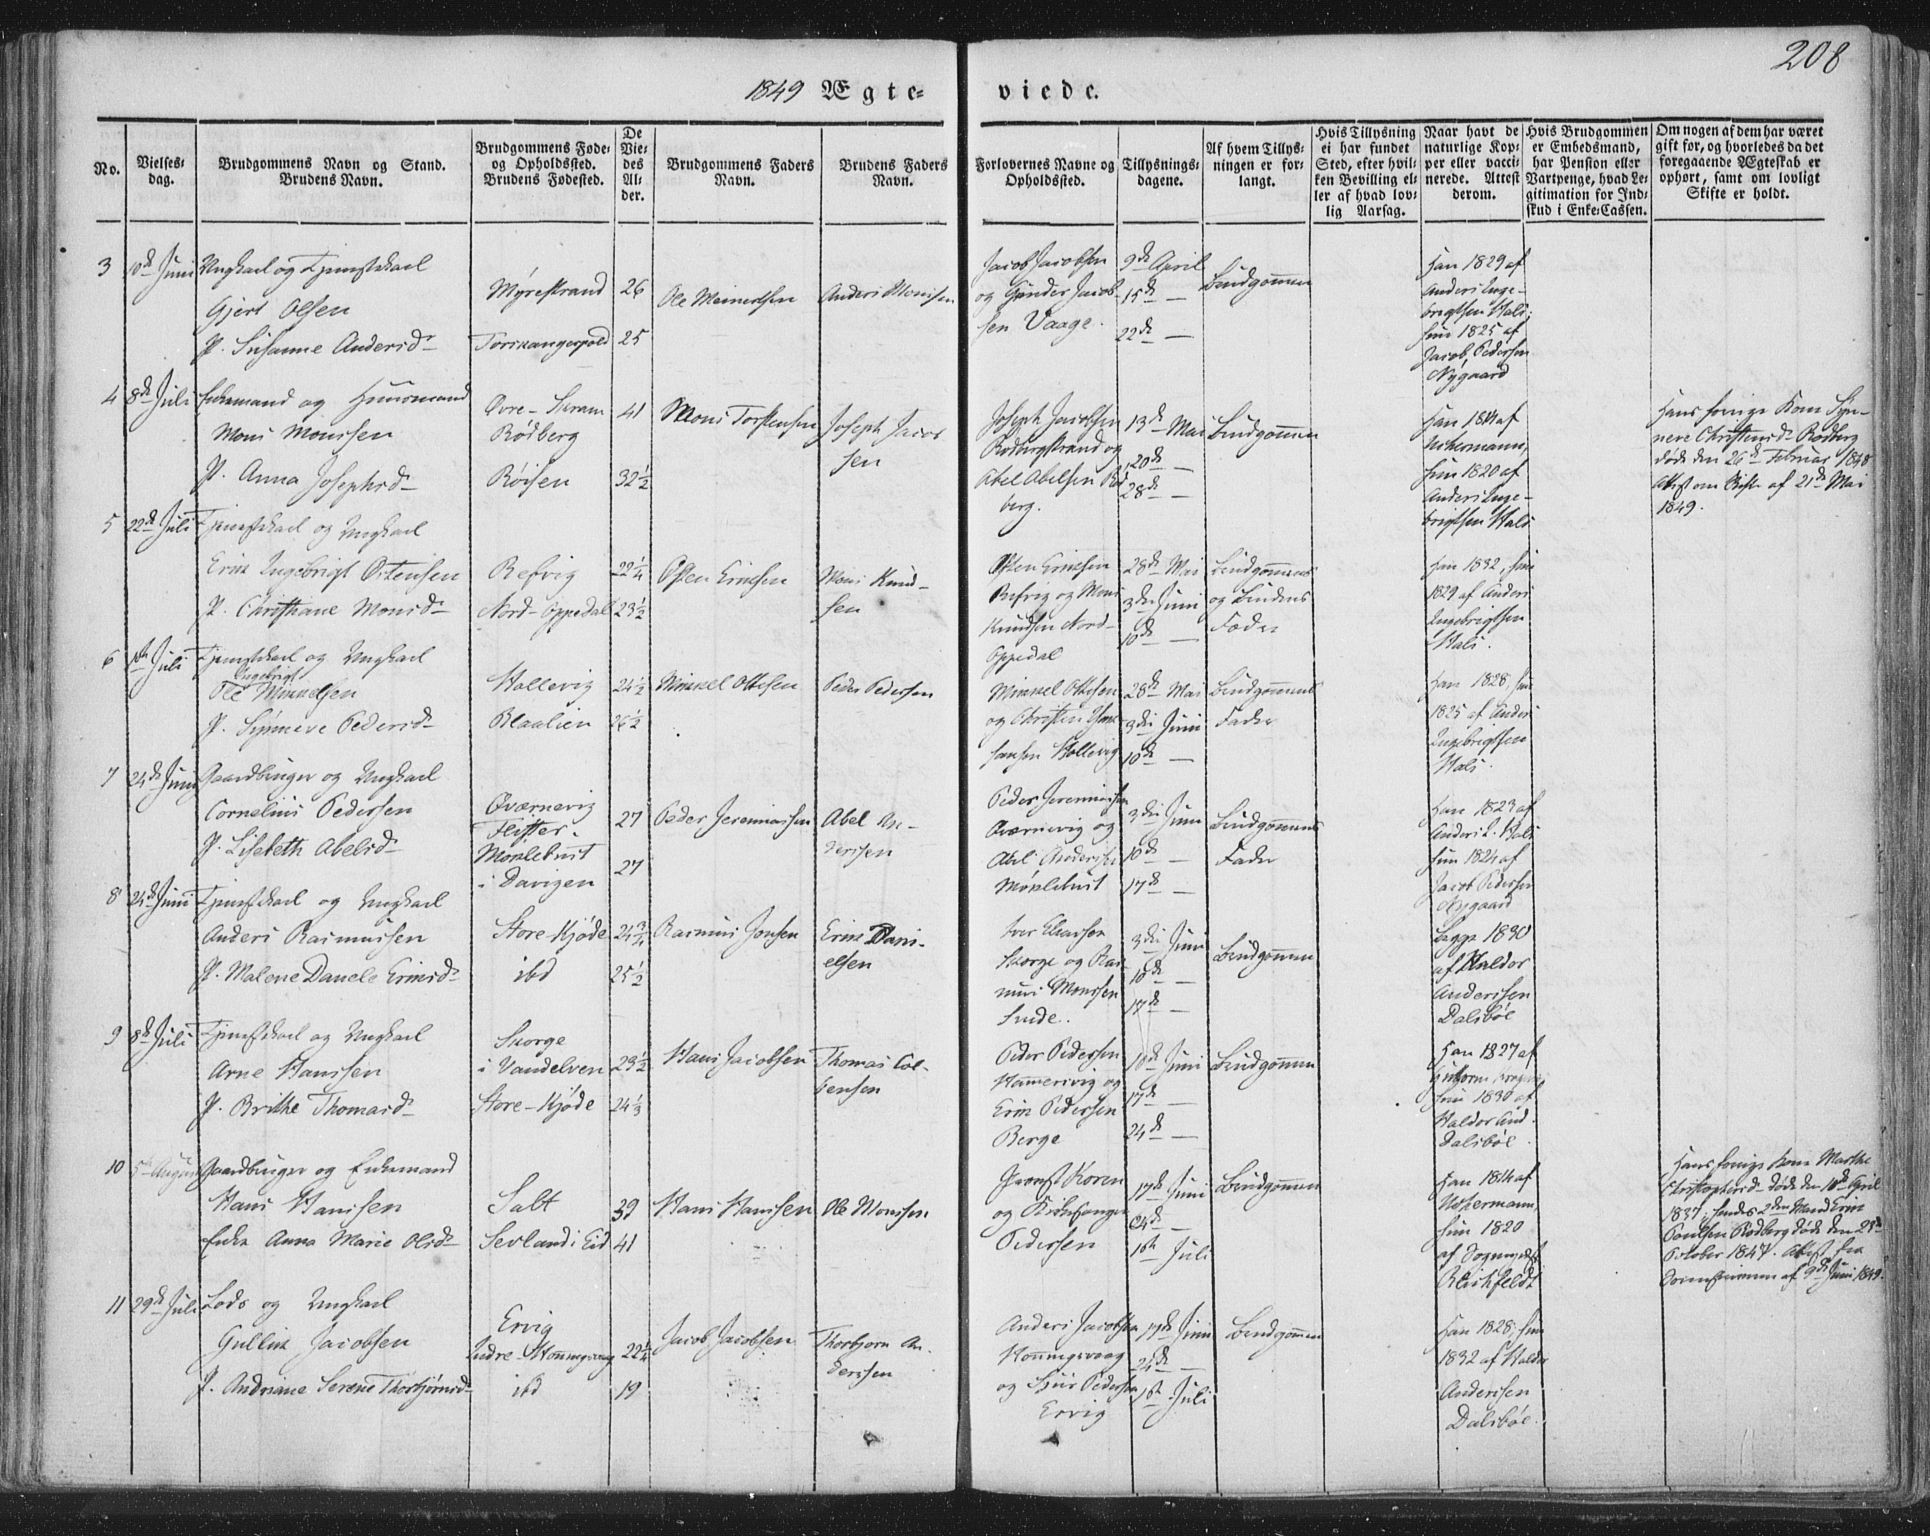 208
1849 Ægte-
viede.
No.
Vielses-
dag.
Brudgommens Navn og Stand.
Brudens Navn.
Brudgommens Føde-
og Opholdssted.
Brudens Fødested.
De
Vie-
des
Al-
der.
Brudgommens Faders
Navn.
Brudens Faders
Navn.
Forlovernes Navne og
Opholdssted.
Tillysnings-
dagene.
Af hvem Tillys-
ningen er for-
langt.
Hvis Tillysning
ei har fundet
Sted, efter hvil-
ken Bevilling el-
ler af hvad lov-
lig Aarsag.
Naar havt de
naturlige Kop-
per eller vacci-
nerede. Attest
derom.
Hvis Brudgommen
er Embedsmand,
har Pension eller
Vartpenge, hvad Le-
gitimation for Ind-
skud i Enke-Cassen.
Om nogen af dem har været
gift før, og hvorledes da det
foregaaende Ægteskab er
ophørt, samt om lovligt
Skifte er holdt.
3 10de Juni Ungkarl og Tjenestekarl
Gjert Olsen
P. Susanne Andersd.
Myrestrand 26
25
Ole Meinertsen
Anders Monsen
Jacob Jacobsen
og Gunder Jacob-
sen Vaage.
9de April
15de —
22de —
Brudgommen
Han 1829 af
Anders Inge-
brigtsen Hals;
hun 1825 af
Jacob Pedersen
Nygaard
4 8de Juli Enkemand og Huusmand
Mons Monssen
P. Anna Josephsd.
Rødberg
Røisen
41
32½
Mons Torstensen
Joseph Jacob
sen
Joseph Jacobsen
Rødbergstrand og
Abel Abelsen Rød
berg.
13de Mai
20de —
28de —
Brudgommen
Han 1814 af
hun 1820 af
Anders Inge-
brigtsen Hals
Hans forrige Kone Syn-
neve Christensd. Rødberg
døde den 26de Februar 1848
Attest om Skifte af 21de Mai
1849.
5 22de Juli Tjenestekarl og Ungkarl
Erik Ingebrigt Østensen
P. Christiane Monsd.
Refvig
Nord-Oppedal
22¼
23½
Østen Ericksen
Mons Knud-
sen
Østen Ericksen
Refvig og Mons
Knudsen Nord-
Oppedal
28de Mai
3die Juni
10de —
Brudgommens
og Brudens
Fader
Han 1832, hun
1829 af Anders
Ingebrigtsen
Hals.
6 1ste Juli Tjenestekarl og Ungkarl
Ingebrigt
Ole Mikkelsen
P. Synneve Pedersd.
Hollevig
Blaalien
24½
26½
Mikkel Ottesen
Peder Pedersen
Mikkel Ottesen
og Christen
Hollevig
28de Mai
3die Juni
10de —
Brudgommens
Fader
Han 1828, hun
1825 af Anders
Ingebrigtsen
Hals.
7 24de Juni Gaardbruger og Ungkarl
Cornelius Pedersen
P. Lisebeth Abelsd.
Qværnevig
Møklebust
i Davigen
27
27
Peder Jeremiassen
Abel An-
dersen
Peder Jeremiassen
Qværnevig og
Abel Andersen
Møklebust
3die Juni
10de —
17de —
Brudgommens
Fader
Han 1823 af
Anders I. Hals
hun 1824 af
Jacob Pedersen
Nygaard
8 24de Juni Tjenestekarl og Ungkarl
Anders Rasmussen
P. Malene Danele Ericksd.
Store-Kjøde
ibd
24¾
25½
Rasmus Jonsen
Erik Dani-
elsen
Iver Eliassen
Skorge og Ras
mus Monssen
3die Juni
10de —
17de —
Brudgommen
Begge 1830
af Haldor
Andersen
Dalsbøe
9 8de Juli Tjenestekarl og Ungkarl
Arne Hanssen
P. Brithe Thomasd.
Skorge
i Vandelven
Store-Kjøde
23½
24⅓
Hans Jacobsen
Thomas Col-
bensen
Peder Pedersen
Hammersvig og
Erik Pedersen
Berge
10de Juni
17de —
24de —
Brudgommen
Han 1827 af
hun 1830 af
Haldor And.
Dalsbøe.
10 5te August Gaardbruger og Enkemand
Hans Hanssen
Enke Anna Marie Olsd.
Salt
Sevland i Eid
39
41
Hans Hanssen
Ole Monssen
Koren
og
Pedersen
17de Juni
24de —
1ste Juli
Brudgommen
Han 1814 af
hun 1820
af Sogneprest
Hans forrige Kone Marthe
Christophersd. døde den 10de April
1837; hendes 2den Mand Erik
Paulsen Rødberg døde den 28de
October 1847. Attest fra
af 9de Juni 1849.
11 29de Juli Lods og Ungkarl
Gullik Jacobsen
P. Andriane Serene Thorbjørnsd.
Ervig
Indre-Honningsvaag
ibd
22¼
19
Jacob Jacobsen
Thorbjørn An-
dersen
Anders Jacobsen
Honningsvaag
og Sjur Pedersen
Ervig
17de Juni
24de —
1ste Juli
Brudgommen
Han 1828, hun
1832 af Haldor
Andersen
Dalsbøe.